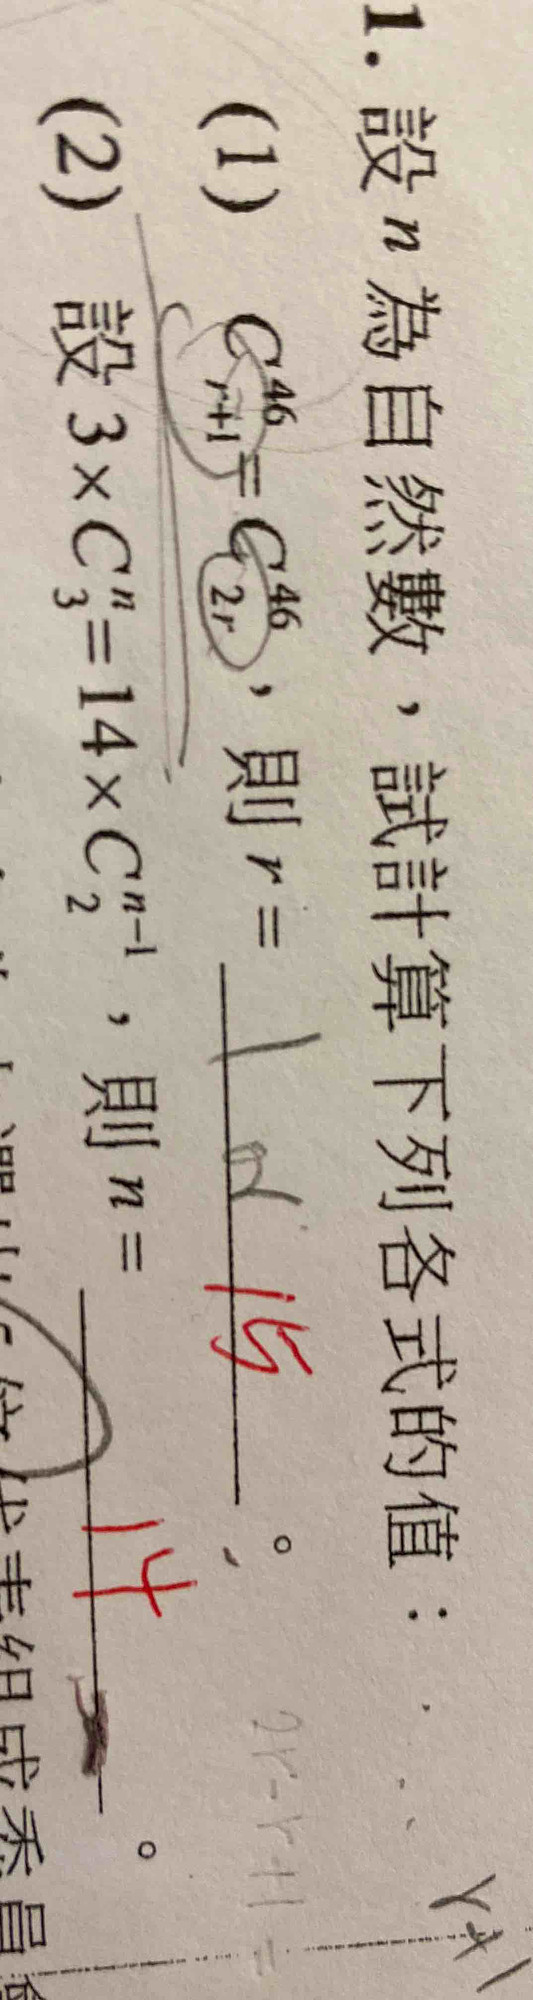 1. 設 n 為自然數，試計算下列各式的值：
(1) C^46_{r+1} = C^46_{2r}，則 r = 1 or 15。
(2) 設 3 × C^n_3 = 14 × C^{n-1}_2，則 n = 14。
2r-r+1=
r+1
位代表組成委員